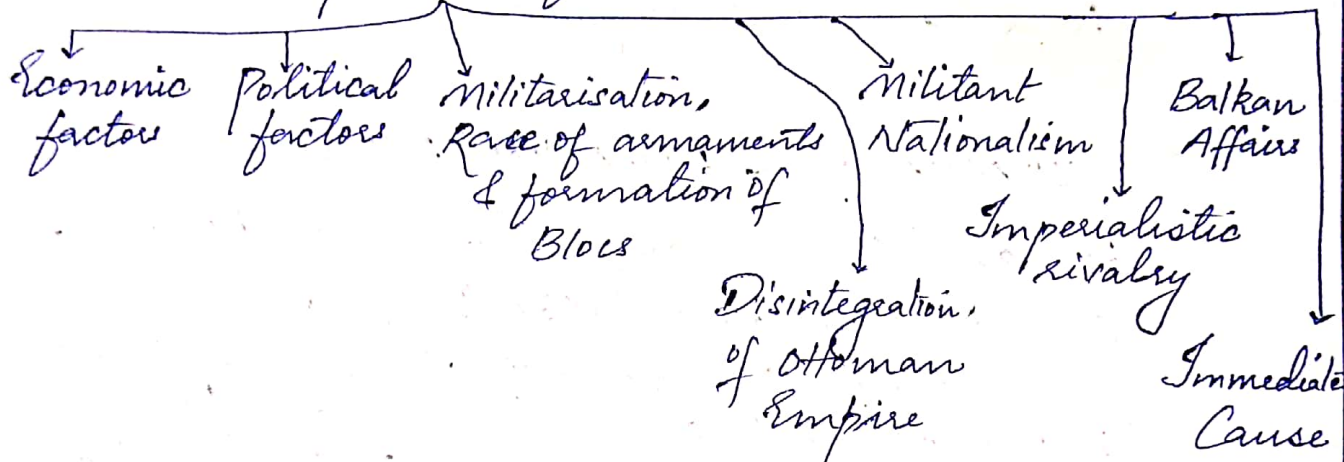 Economic
factors
Political
factors
Militarisation,
Race of armaments
& formation of
Blocs
Disintegration.
of Ottoman
Empire
Militant
Nationalism
Imperialistic
rivalry
Balkan
Affairs
Immediate
Cause